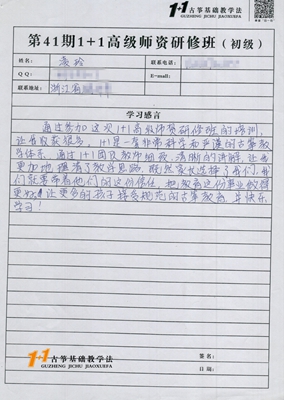 1+1古筝基础教学法
GUZHENG JICHU JIAOXUEFA
第41期1+1高级师资研修班（初级）
姓名：
联系电话：
QQ：
E-mail：
联系地址：浙江省
学习感言
通过参加这次1+1高级师资研修班的培训，
让我收获很多，1+1是一套非常科学和严谨的古筝教
学体系，通过1+1团队教师细致、清晰的讲解，让我
更加地理清了教学思路，既然家长选择了我们，我
们就要带着他们的这份信任，把教育这份事业做得
更好，让更多的孩子接受规范的古筝教育，并快乐
学习！
1+1古筝基础教学法
GUZHENG JICHU JIAOXUEFA
签名：
日期：